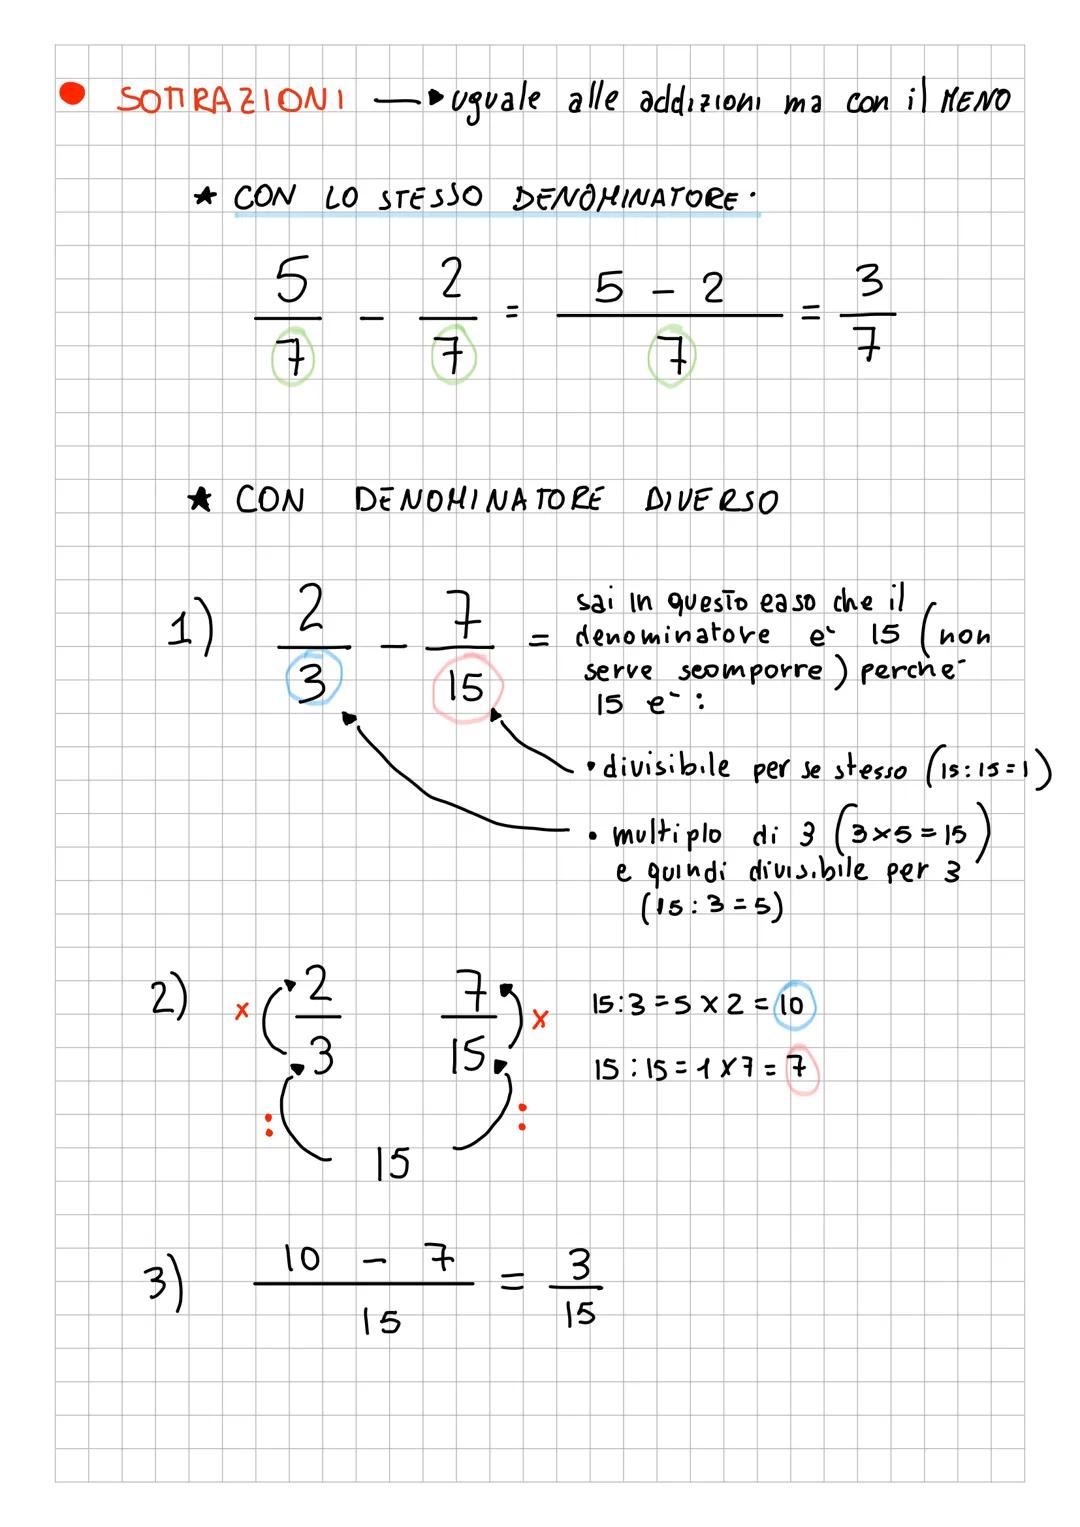 SOTTRAZIONI → uguale alle addizioni ma con il MENO
★ CON LO STESSO DENOMINATORE.
5/7 - 2/7 = (5 - 2)/7 = 3/7
★ CON DENOMINATORE DIVERSO
1) 2/3 - 7/15 =
sai in questo caso che il
denominatore e` 15 (non
serve scomporre) perche´
15 e` :
• divisibile per se stesso (15:15=1)
• multiplo di 3 (3×5=15)
e quindi divisibile per 3
(15:3=5)
2) × 2/3 7/15 ×
15:3=5×2=10
15:15=1×7=7
: 15 :
3) (10 - 7)/15 = 3/15